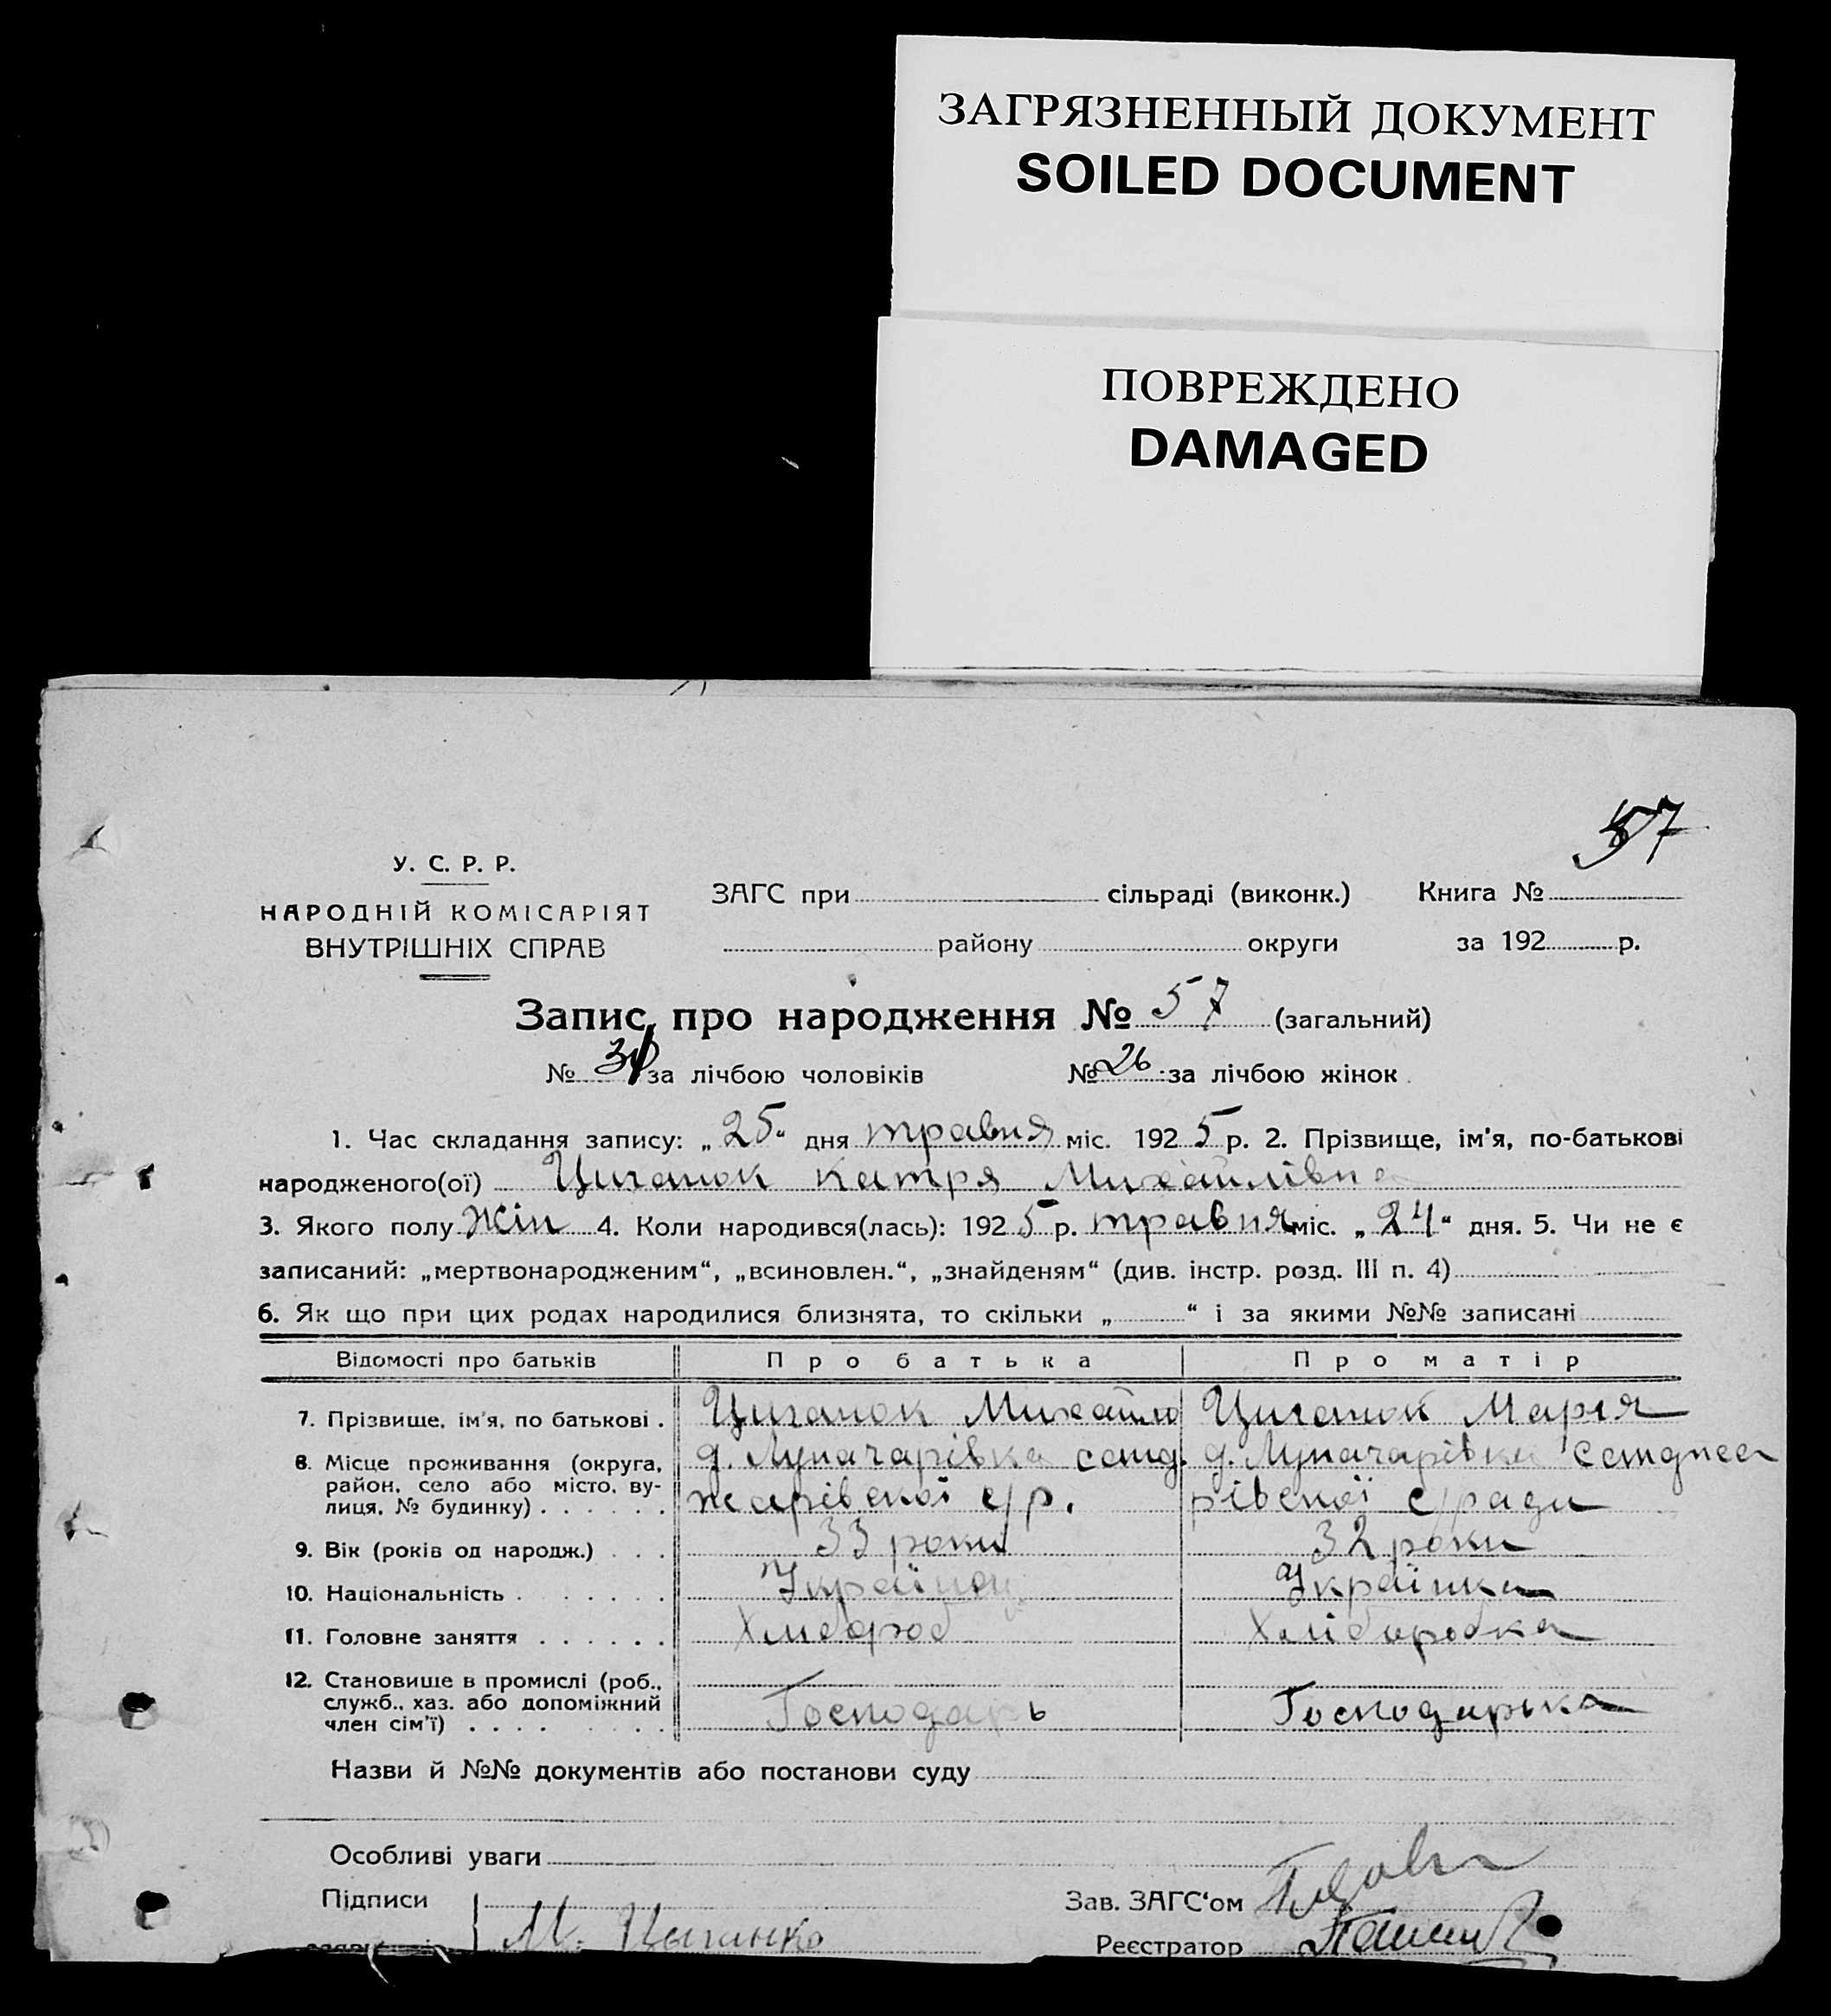 ЗАГРЯЗНЕННЫЙ ДОКУМЕНТ
SOILED DOCUMENT
ПОВРЕЖДЕНО
DAMAGED
57
У. С. Р. Р.
НАРОДНІЙ КОМІСАРІЯТ
ВНУТРІШНІХ СПРАВ
ЗАГС при сільраді (виконк.) Книга №
району округи за 192 р.
Запис про народження № 57 (загальний)
№ за лічбою чоловіків № 26 за лічбою жінок
1. Час складання запису: „25“ дня травня міс. 1925 р. 2. Прізвище, ім'я, по-батькові
народженого(ої) Циганок Катря Михайлівна
3. Якого полу Жін 4. Коли народився(лась): 1925 р. травня міс. „24“ дня. 5. Чи не є
записаний: „мертвонародженим“, „всиновлен.“, „знайденям“ (див. інстр. розд. III п. 4)
6. Як що при цих родах народилися близнята, то скільки „ “ і за якими №№ записані
Відомості про батьків Про батька Про матір
7. Прізвище, ім'я, по батькові . Циганок Михайло Циганок Марія
8. Місце проживання (округа, район, село або місто, вулиця, № будинку) . . . . . . д. Луначарівка с/р. д. Луначарівка с/ради
9. Вік (років од народж.) . . . 33 роки 32 роки
10. Національність . . . . . . . Українец Українка
11. Головне заняття . . . . . . Хлібороб Хліборобка
12. Становище в промислі (роб., служб., хаз. або допоміжний член сім'ї) . . . . Господарь Господарька
Назви й №№ документів або постанови суду
Особливі уваги
Підписи
Зав. ЗАГС'ом
М. Цыганко
Реєстратор